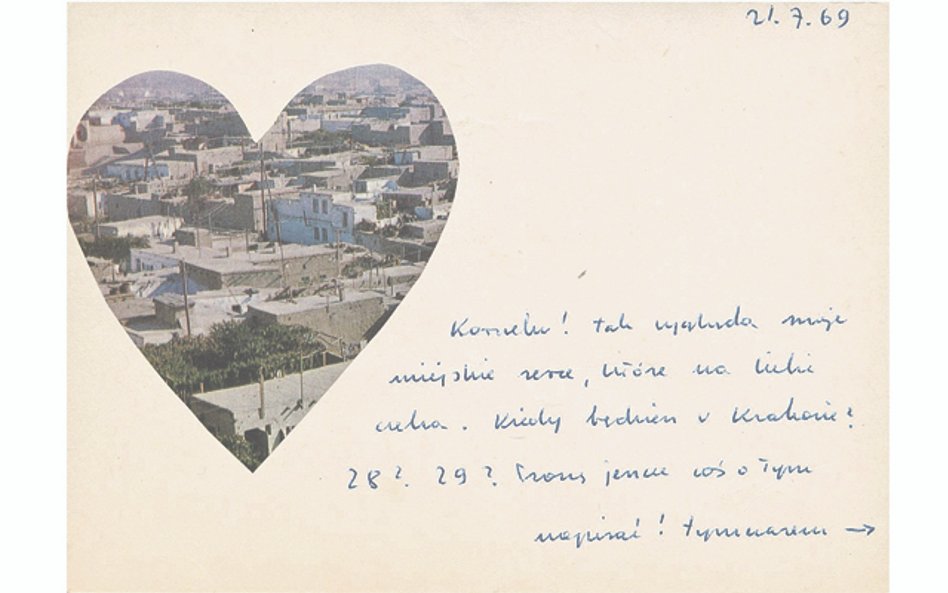 21.7.69
Kornelu! tak wygląda moje
miejskie serce, które na Ciebie
czeka. Kiedy będziesz w Krakowie?
28? 29? Proszę jeszcze coś o tym
napisać! Tymczasem →